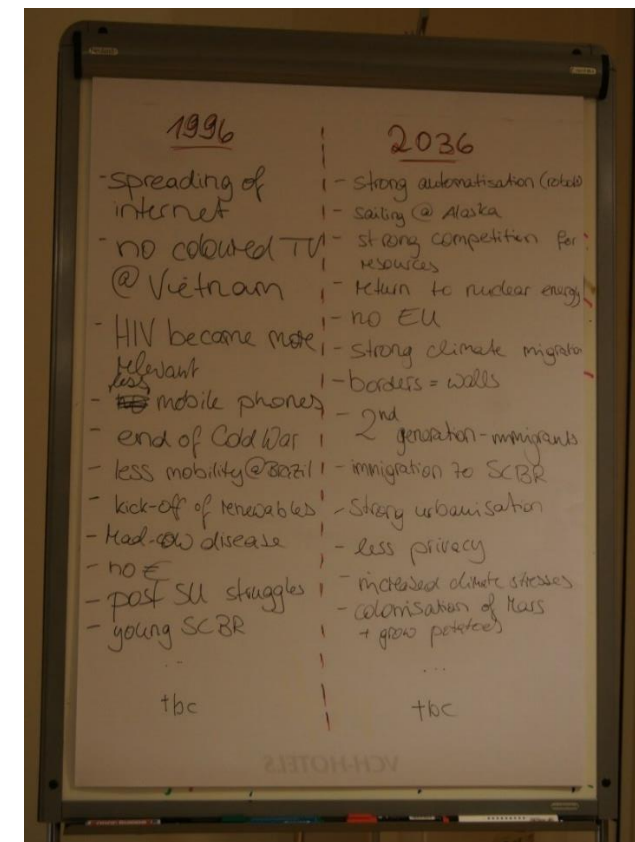 1996
- spreading of
internet
- no coloured TV
@ Viétnam
- HIV became more
relevant
less
- mobile phones
- end of Cold War
- less mobility @ Brazil
- kick-off of renewables
- Mad-cow disease
- no €
- post SU struggles
- young SCBR
...
tbc
2036
- strong automatisation (robots)
- sailing @ Alaska
- strong competition for
resources
- return to nuclear energy
- no EU
- strong climate migration
- borders = walls
- 2nd
generation-immigrants
- immigration to SCBR
- strong urbanisation
- less privacy
- increased climate stresses
- colonisation of Mars
+ grow potatoes
...
tbc
VCH-HOTELS